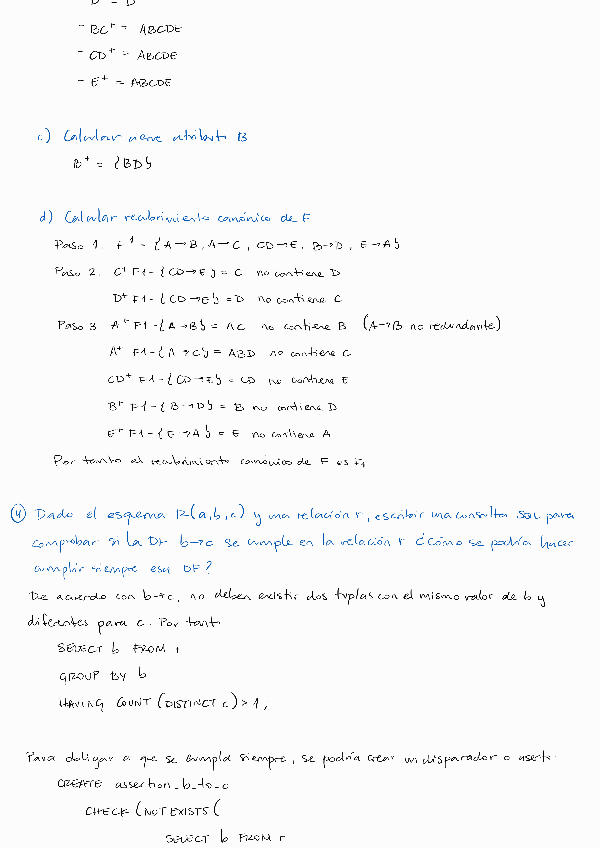 D⁺ = D
- BC⁺ = ABCDE
- CD⁺ = ABCDE
- E⁺ = ABCDE
c) Calcular cierre atributo B
B⁺ = {BD}
d) Calcular recubrimiento canónico de F
Paso 1. F1 = {A→B, A→C, CD→E, B→D, E→A}
Paso 2. C⁺ F1-{CD→E} = C no contiene D
D⁺ F1-{CD→E} = D no contiene C
Paso 3 A⁺ F1-{A→B} = AC no contiene B (A→B no redundante)
A⁺ F1-{A→C} = ABD no contiene C
CD⁺ F1-{CD→E} = CD no contiene E
B⁺ F1-{B→D} = B no contiene D
E⁺ F1-{E→A} = E no contiene A
Por tanto el recubrimiento canónico de F es F1
④ Dado el esquema R(a,b,c) y una relación r, escribir una consulta SQL para
comprobar si la DF b→c se cumple en la relación r ¿Cómo se podría hacer
cumplir siempre esa DF?
De acuerdo con b→c, no deben existir dos tuplas con el mismo valor de b y
diferentes para c. Por tant
SELECT b FROM r
GROUP BY b
HAVING COUNT (DISTINCT c) > 1;
Para obligar a que se cumpla siempre, se podría crear un disparador o aserto.
CREATE assertion_b_to_c
CHECK (NOT EXISTS (
SELECT b FROM r